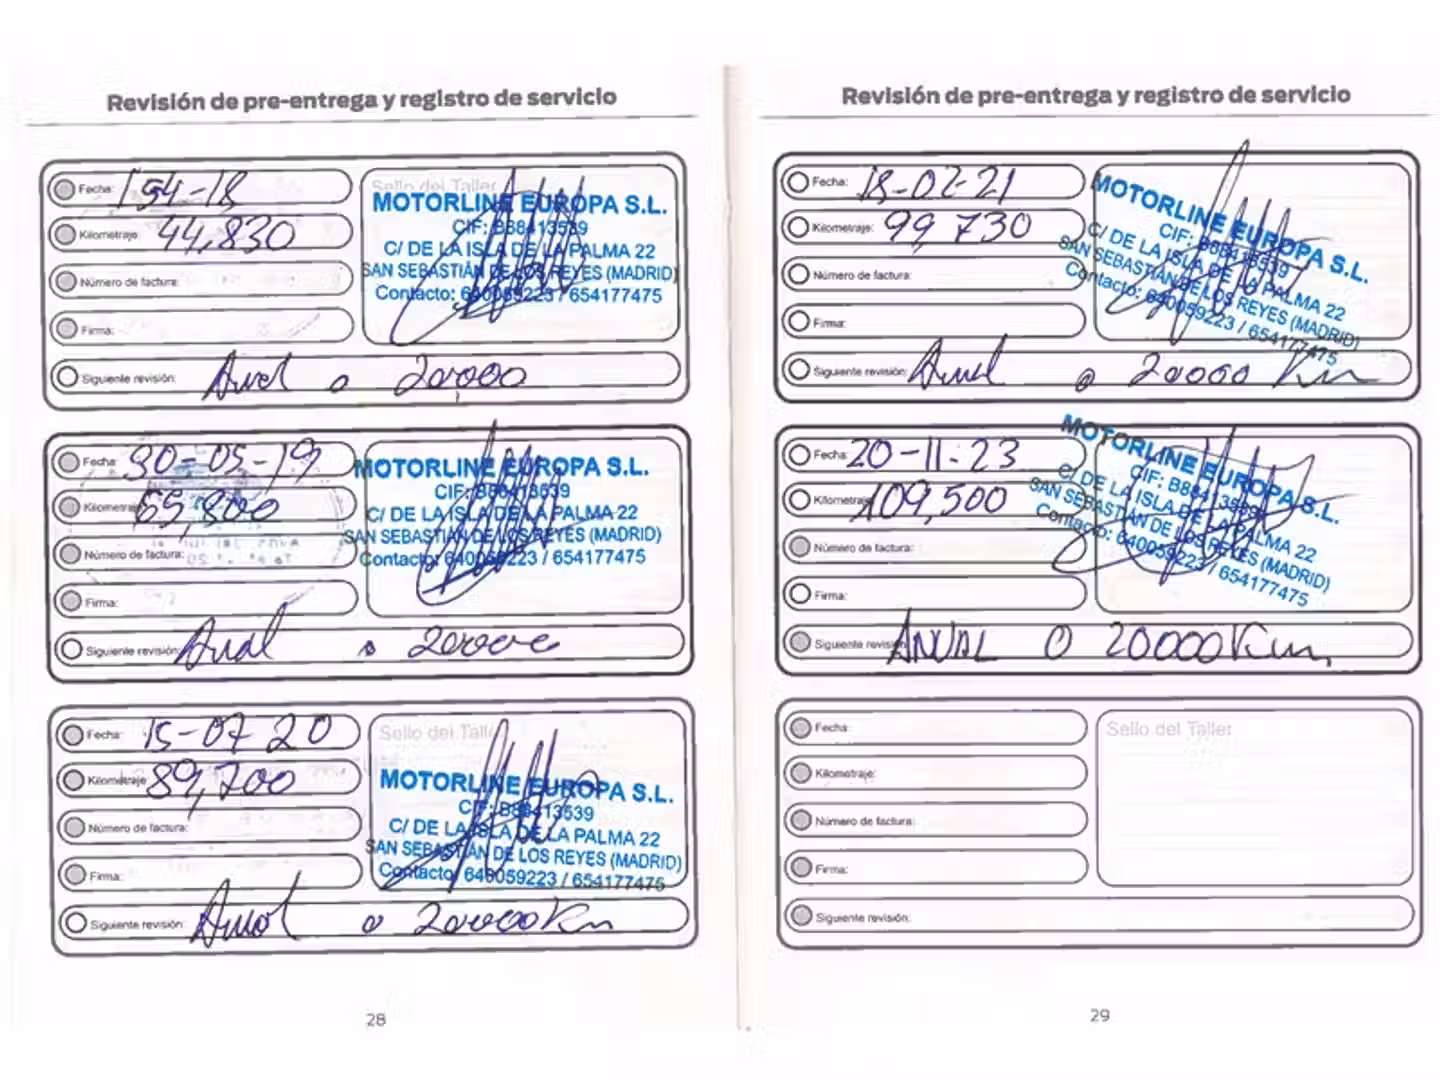 Revisión de pre-entrega y registro de servicio
Fecha: 154-18
Kilometraje: 44,830
Número de factura:
Firma:
Siguiente revisión: Anual o 20,000
Sello del Taller
MOTORLINE EUROPA S.L.
CIF: B88413539
C/ DE LA ISLA DE LA PALMA 22
SAN SEBASTIÁN DE LOS REYES (MADRID)
Contacto: 640059223 / 654177475
Fecha: 30-05-19
Kilometraje: 65,800
Número de factura:
Firma:
Siguiente revisión: Anual o 20000
MOTORLINE EUROPA S.L.
CIF: B88413539
C/ DE LA ISLA DE LA PALMA 22
SAN SEBASTIÁN DE LOS REYES (MADRID)
Contacto: 640059223 / 654177475
Fecha: 15-07 20
Kilometraje: 89,700
Número de factura:
Firma:
Siguiente revisión: Anual o 20000 Km
Sello del Taller
MOTORLINE EUROPA S.L.
CIF: B88413539
C/ DE LA ISLA DE LA PALMA 22
SAN SEBASTIÁN DE LOS REYES (MADRID)
Contacto: 640059223 / 654177475
28
Revisión de pre-entrega y registro de servicio
Fecha: 18-02-21
Kilometraje: 99,730
Número de factura:
Firma:
Siguiente revisión: Anual o 20000 Km
MOTORLINE EUROPA S.L.
CIF: B88413539
C/ DE LA ISLA DE LA PALMA 22
SAN SEBASTIÁN DE LOS REYES (MADRID)
Contacto: 640059223 / 654177475
Fecha: 20-11-23
Kilometraje: 109,500
Número de factura:
Firma:
Siguiente revisión: ANUAL O 20000 Km,
MOTORLINE EUROPA S.L.
CIF: B88413539
C/ DE LA ISLA DE LA PALMA 22
SAN SEBASTIÁN DE LOS REYES (MADRID)
Contacto: 640059223 / 654177475
Fecha:
Kilometraje:
Número de factura:
Firma:
Siguiente revisión:
Sello del Taller
29